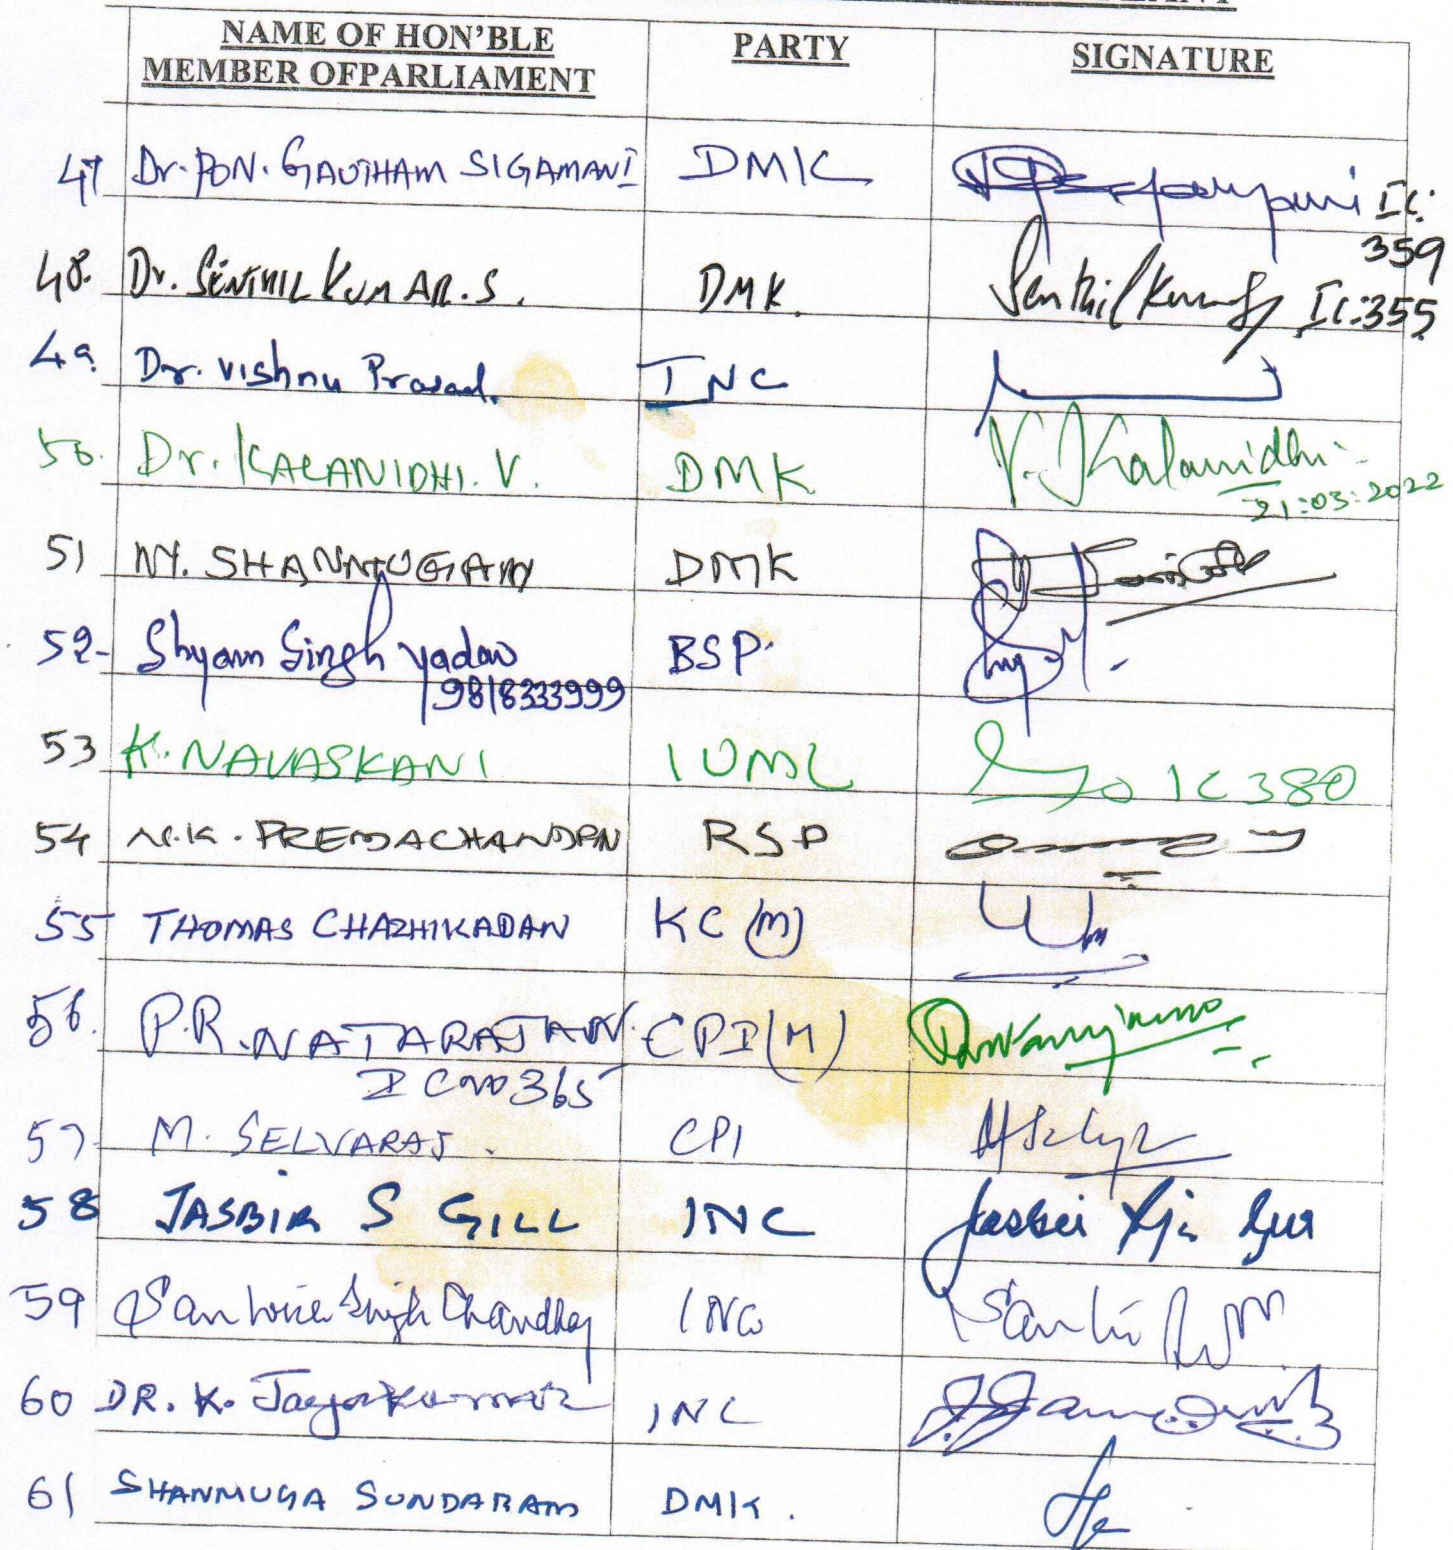 NAME OF HON'BLE MEMBER OFPARLIAMENT PARTY SIGNATURE
47 Dr. PON. GAUTHAM SIGAMANI DMK IC: 359
48. Dr. SENTHIL KUMAR. S. DMK. Senthil Kumar S IC:355
49. Dr. Vishnu Prasad. INC
50. Dr. KALANIDHI. V. DMK V. Kalanidhi
21:03:2022
51 M. SHANMUGAM DMK
52- Shyam Singh yadav BSP.
9818333999
53 K. NAVASKANI IUML IC 380
54 N.K. PREMACHANDRAN RSP
55 THOMAS CHAZHIKADAN KC (M)
56. P.R. NATARAJAN. CPI(M)
IC NO 365
57- M. SELVARAJ. CPI
58 JASBIR S GILL INC
59 Santokh Singh Chaudhary INC
60 DR. K. Jayakumar INC
61 SHANMUGA SUNDARAM DMK.